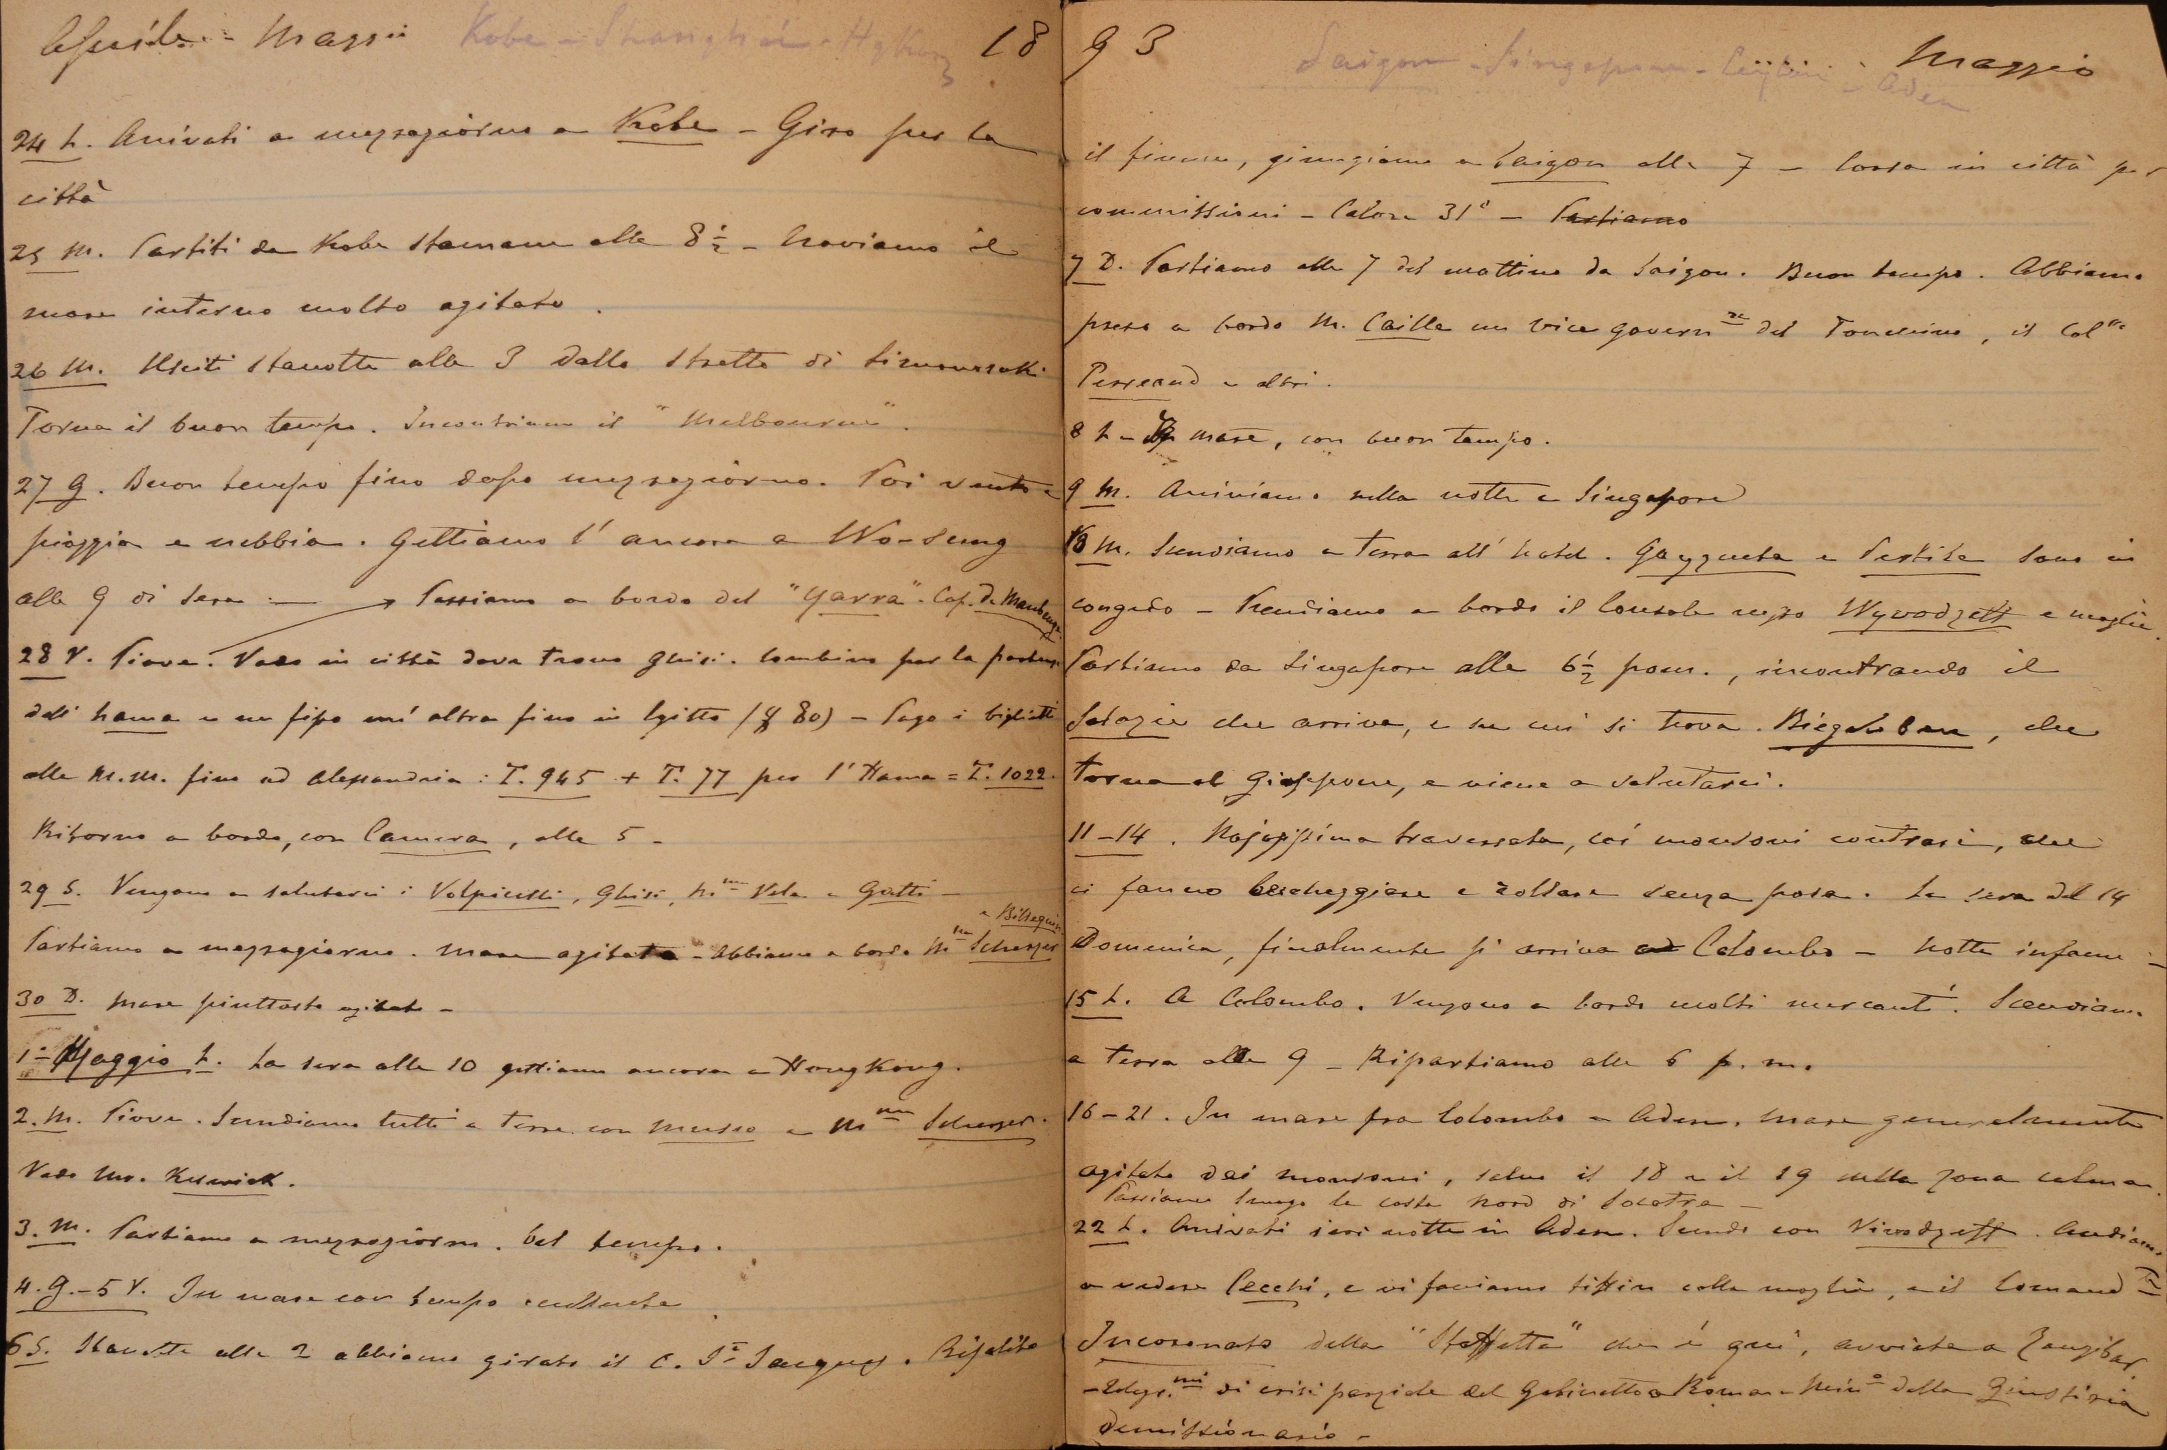 Aprile - Maggio Kobe - Shanghai - HgKong 18
24 L. Arrivati a mezzogiorno a Kobe - Giro per la
città
25 M. Partiti da Kobe stamane alle 8 1/2 - Troviamo il
mare interno molto agitato.
26 M. Usciti stanotte alle 3 dallo stretto di Simonosaki
Torna il buon tempo. Incontriamo il "Melbourne".
27 G. Buon tempo fino dopo mezzogiorno. Poi vento e
pioggia e nebbia. Gettiamo l'ancora a Wo-Sung
alle 9 di sera — Passiamo a bordo del "Yarra". Cap. De Maubeuge.
28 V. Piove. Vado in città dove trovo Ghisi. Combino per la partenza
dell' hama e un fipo mi altra fino in Egitto ($ 80) - Pago i biglietti
alle M.M. fino ad Alessandria: T. 945 + T. 77 per l'Hama = T. 1022.
Ritorno a bordo, con Camera, alle 5 -
29 S. Vengono a salutarci: Volpicelli, Ghisi, M.me Vela e Gatti -
e Bilsegui
Partiamo a mezzogiorno. Mare agitato - Abbiamo a bordo Mme Scherzer
30 D. Mare piuttosto agitato -
1° Maggio L. La sera alle 10 gettiamo ancora a HongKong.
2. M. Piove. Scendiamo tutti a terra con Musso e Mme Scherzer.
Vedo Mr. Keswick.
3. M. Partiamo a mezzogiorno. Bel tempo.
4. G. - 5 V. In mare con tempo eccellente
6 S. Stanotte alle 2 abbiamo girato il C. St Jacques. Risalito
93 Saigon - Singapore - Ceylon - Aden Maggio
il fiume, giungiamo a Saigon alle 7 - Corsa in città per
commissioni - Calore 31° - Partiamo
7 D. Partiamo alle 7 del mattino da Saigon. Buon tempo. Abbiamo
preso a bordo M. Caille un vice govern.re del Tonchino, il Col.llo
Perreaud e altri.
8 L - In mare, con buon tempo.
9 M. Arriviamo nella notte a Singapore
10 M. Scendiamo a terra all' hotel. Gayzueta e Pertile sono in
congedo - Prendiamo a bordo il Console russo Wywodzeff e moglie.
Partiamo da Singapore alle 6 1/2 pom., incontrando il
Salazie che arriva, e su cui si trova Biegeleben, che
torna al Giappone, e viene a salutarci.
11-14. Noiosissima traversata, coi monsoni contrari, che
ci fanno beccheggiare e rollare senza posa. La sera del 14
Domenica, finalmente si arriva a Colombo - Notte infame -
15 L. A Colombo. Vengono a bordo molti mercanti. Scendiamo
a terra alle 9 - Ripartiamo alle 6 p.m.
16-21. In mare fra Colombo e Aden. Mare generalmente
agitato dai monsoni, salvo il 18 e il 19 nella zona calma.
Passiamo lungo la costa nord di Socotra -
22 L. Arrivati ieri notte in Aden. Scendo con Vivodzeff. Andiamo
a vedere Cecchi, e vi facciamo tiffin colla moglie, e il Comand.te
Incoronato della "Staffetta" che è qui, avviata a Zanzibar.
- Telegr.mi di crisi parziale del Gabinetto a Roma - Min.o della Giustizia
dimissionario -